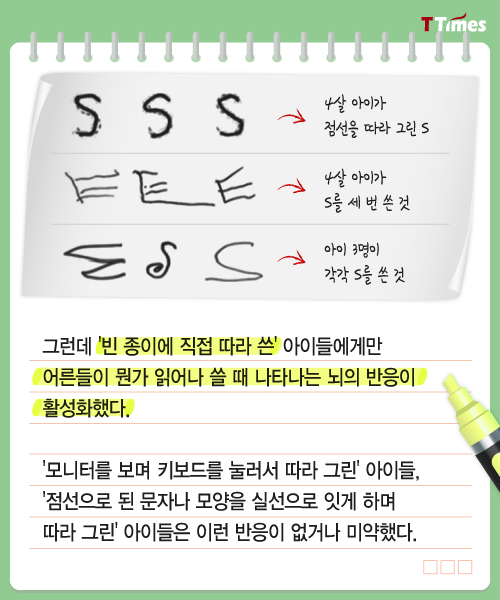 TTimes
S S S
4살 아이가
점선을 따라 그린 S
4살 아이가
S를 세 번 쓴 것
S S
아이 3명이
각각 S를 쓴 것
그런데 '빈 종이에 직접 따라 쓴' 아이들에게만
어른들이 뭔가 읽어나 쓸 때 나타나는 뇌의 반응이
활성화했다.
'모니터를 보며 키보드를 눌러서 따라 그린' 아이들,
'점선으로 된 문자나 모양을 실선으로 잇게 하며
따라 그린' 아이들은 이런 반응이 없거나 미약했다.